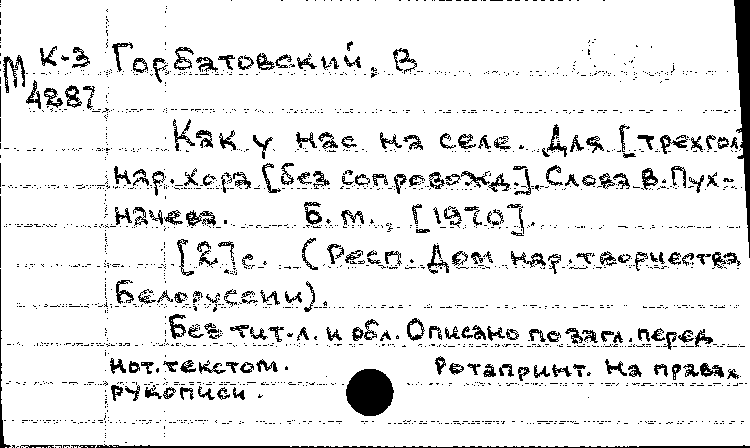 М К-3 Горбатовский, В
4887
Как у нас на селе. Для [трехгол]
нар. хора [без сопровожд.]. Слова В. Пух-
начева. Б.м., [1970].
[2]с. (Респ. Дом нар. творчества
Белоруссии).
Без тит.л. и обл. Описано по загл. перед
нот. текстом. Ротапринт. На правах
рукописи.